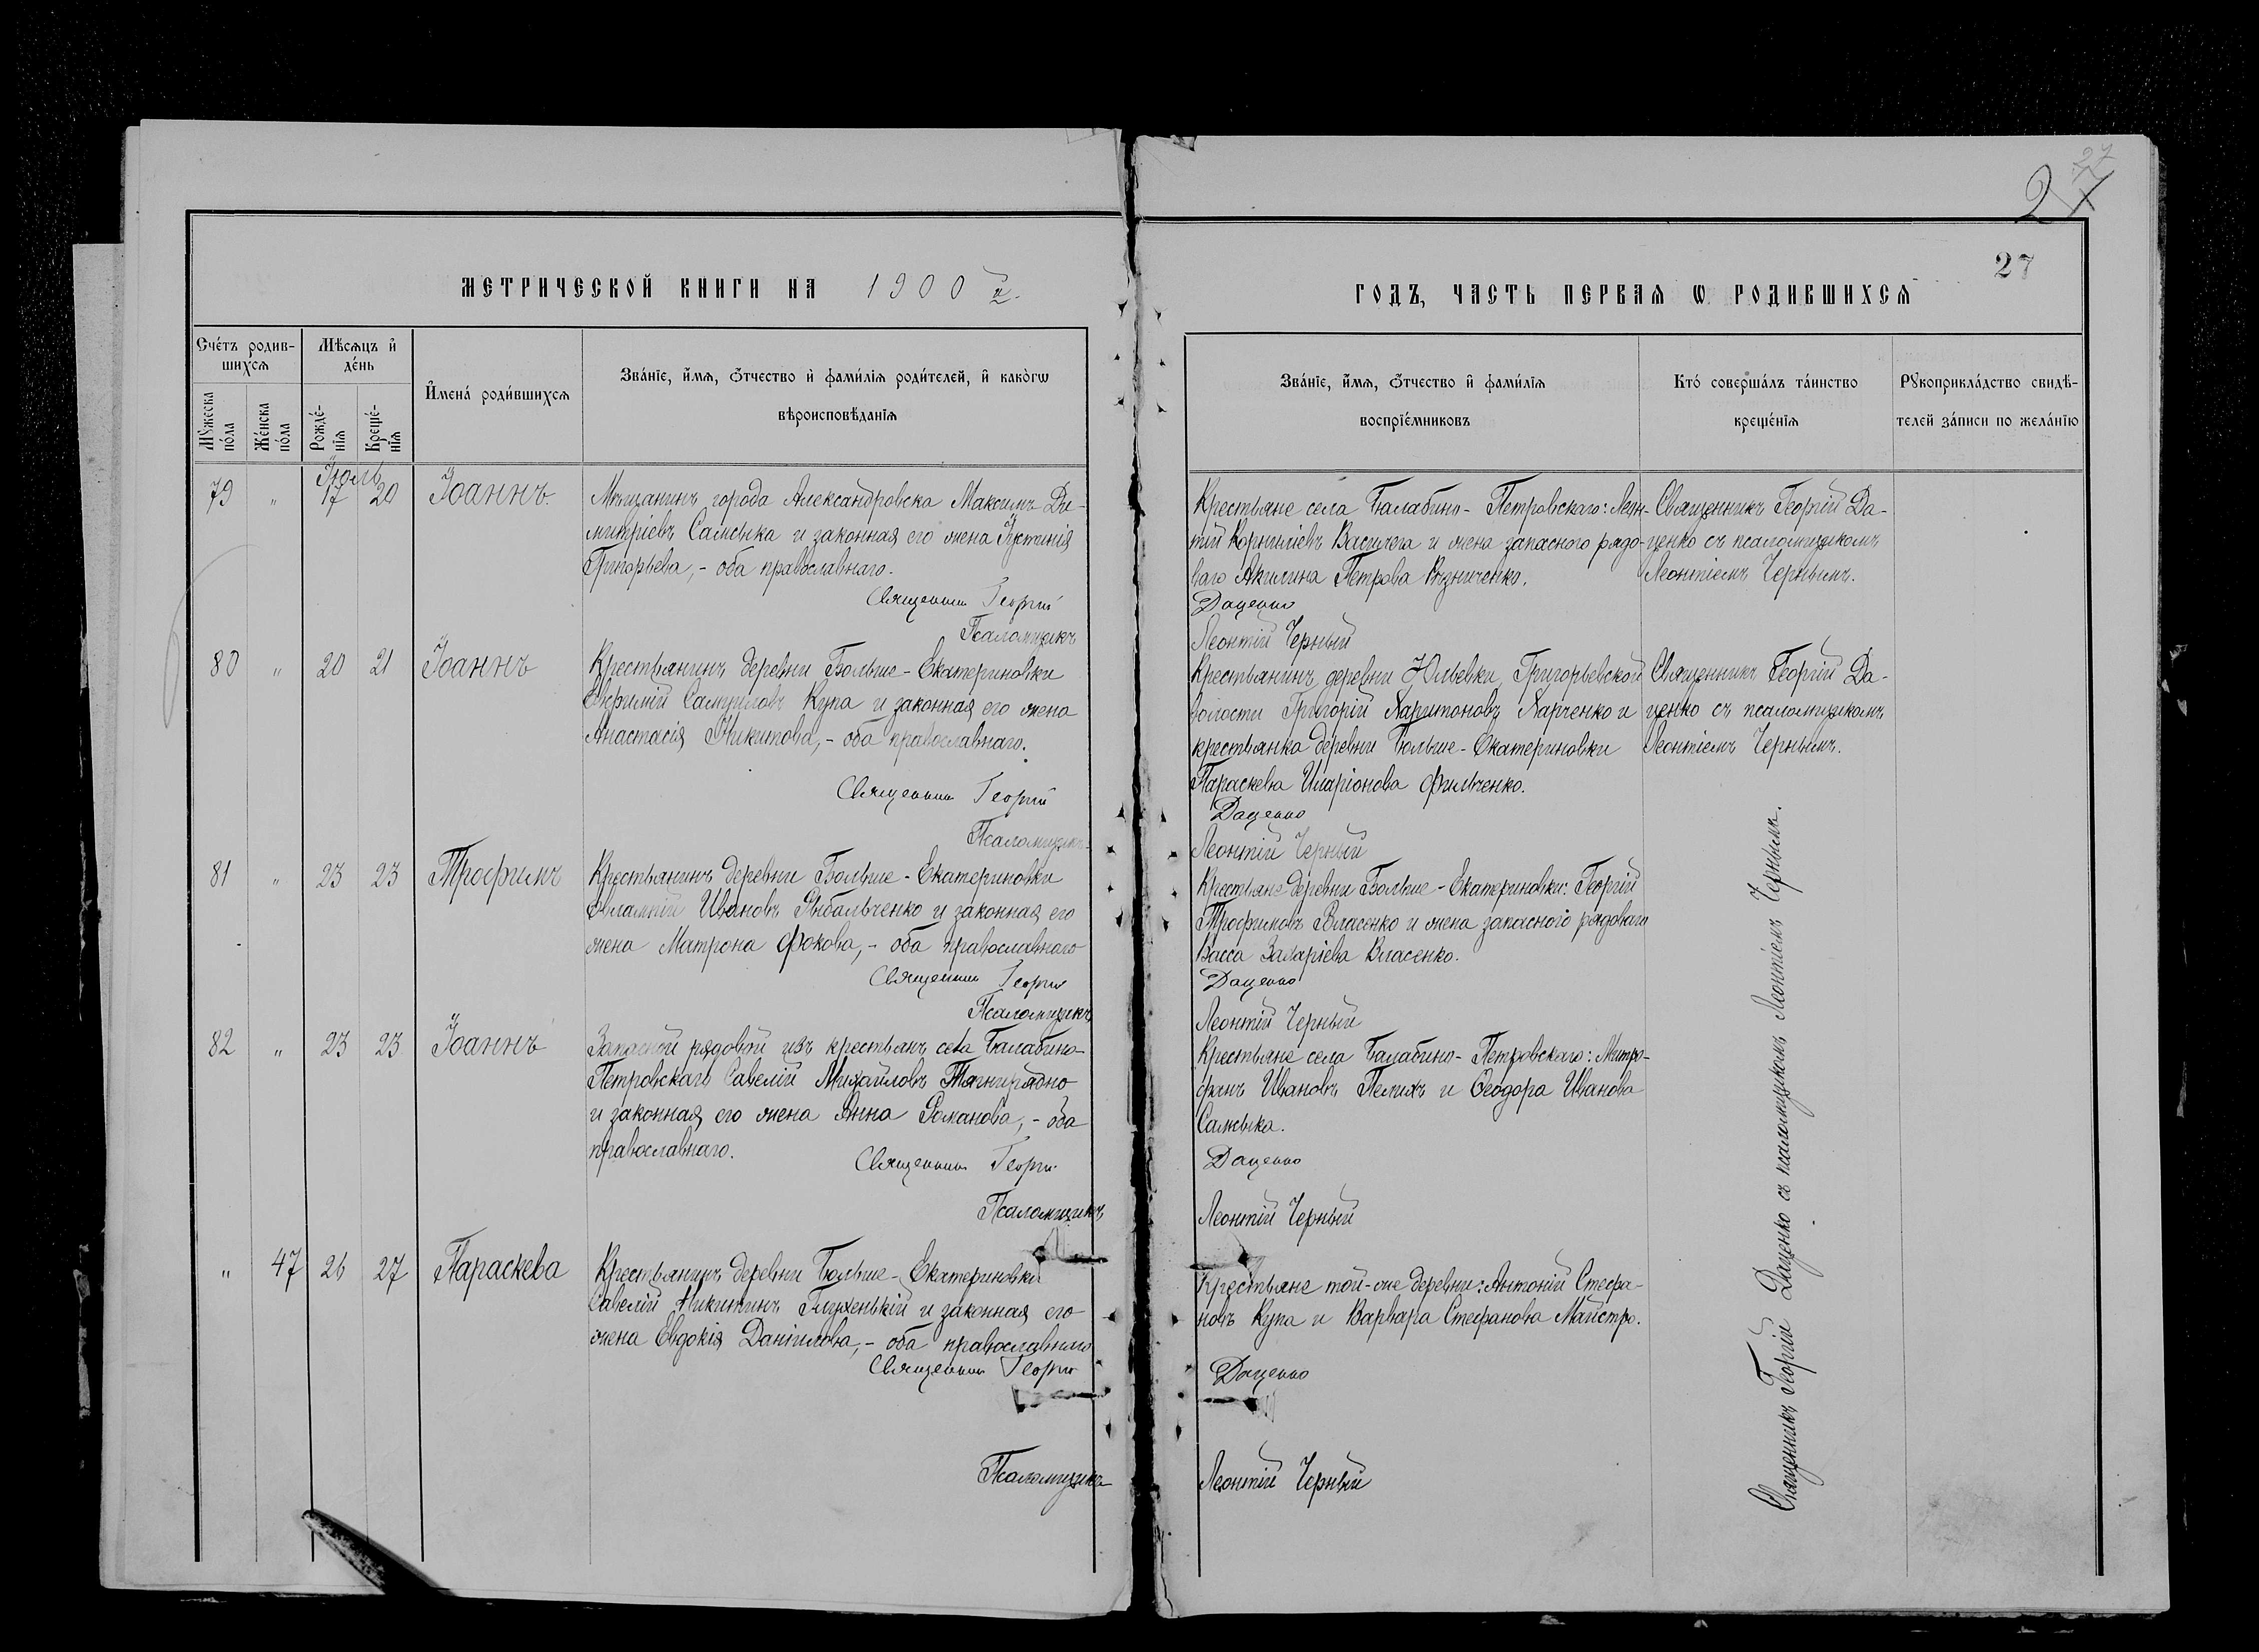 27
27
27
МЕТРИЧЕСКОЙ КНИГИ НА 1900 г.
ГОДЪ, ЧАСТЬ ПЕРВАЯ Ѡ РОДИВШИХСЯ
Сче́тъ родив-
шихсѧ
Мѣсѧцъ и҆
де́нь
Мꙋ́жеска
по́ла
Же́нска
по́ла
Рожде́-
нїѧ
Креще́-
нїѧ
И҆мена̀ роди́вшихсѧ
Зва́нїе, и҆́мѧ, ѻ҆́тчество и҆ фами́лїѧ роди́телей, и҆ како́гѡ
вѣроисповѣ́данїѧ
Зва́нїе, и҆́мѧ, ѻ҆́тчество и҆ фами́лїѧ
воспрїе́мниковъ
Кто́ соверша́лъ та́инство
креще́нїѧ
Рꙋкоприкла́дство свидѣ́-
телей за́писи по жела́нїю
Іюль
79 " 17 20 Іоаннъ.
Мѣщанинъ города Александровска Максимъ Ди-
митріевъ Самсыка и законная его жена Іустинія
Григорьева, - оба православнаго.
Священникъ Георгій
Псаломщикъ
Крестьяне села Балабино-Петровскаго: Леон-
тій Корниліевъ Василега и жена запаснаго рядо-
ваго Акилина Петрова Рѣзниченко.
Даценко
Леонтій Черный
Священникъ Георгій Да-
ценко съ псаломщикомъ
Леонтіемъ Чернымъ.
80 " 20 21 Іоаннъ
Крестьянинъ деревни Больше-Екатериновки
Евфимій Самуиловъ Купа и законная его жена
Анастасія Никитова, - оба православнаго.
Священникъ Георгій
Псаломщикъ
Крестьянинъ деревни Юльевки, Григорьевской
волости Григорій Харитоновъ Харченко и
крестьянка деревни Больше-Екатериновки
Параскева Иларіонова Фильченко.
Даценко
Леонтій Черный
Священникъ Георгій Да-
ценко съ псаломщикомъ
Леонтіемъ Чернымъ.
81 " 23 23 Трофимъ
Крестьянинъ деревни Больше-Екатериновки
Евлампій Ивановъ Рыбальченко и законная его
жена Матрона Фокова, - оба православнаго
Священникъ Георгій
Псаломщикъ
Крестьяне деревни Больше-Екатериновки: Георгій
Трофимовъ Власенко и жена запасного рядоваго
Васса Захаріева Власенко.
Даценко
Леонтій Черный
82 " 23 23 Іоаннъ
Запасный рядовой изъ крестьянъ села Балабино-
Петровскаго Савелій Михайловъ Тягнирядно
и законная его жена Анна Романова, - оба
православнаго.
Священникъ Георгій
Псаломщикъ
Крестьяне села Балабино-Петровскаго: Митро-
фанъ Ивановъ Пелихъ и Ѳеодора Иванова
Самсыка.
Даценко
Леонтій Черный
" 47 26 27 Параскева
Крестьянинъ деревни Больше-Екатериновки
Савелій Никитинъ Глухенькій и законная его
жена Евдокія Даніилова, - оба православнаго
Священникъ Георгій
Псаломщикъ
Крестьяне той-же деревни: Антоній Стефа-
новъ Купа и Варвара Стефанова Майстро.
Даценко
Леонтій Черный
Священникъ Георгій Даценко съ псаломщикомъ Леонтіемъ Чернымъ.